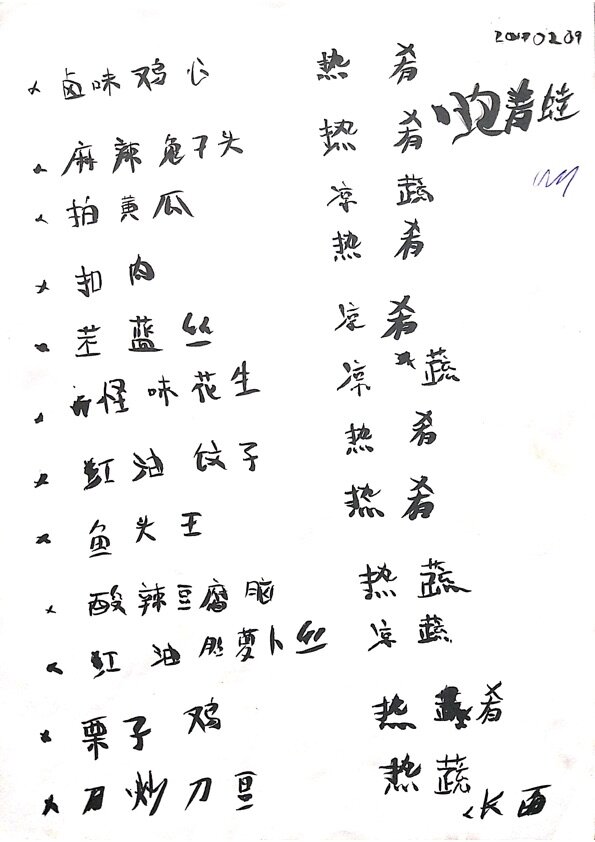 20170209
卤味鸡心 热 肴
泡青蛙
麻辣兔子头 热 肴
拍黄瓜 凉 蔬
扣肉 热 肴
苤蓝丝 凉 肴
怪味花生 凉 蔬
红油饺子 热 肴
鱼头王 热 肴
酸辣豆腐脑 热 蔬
红油胡萝卜丝 凉 蔬
栗子鸡 热 肴
刀炒刀豆 热 蔬